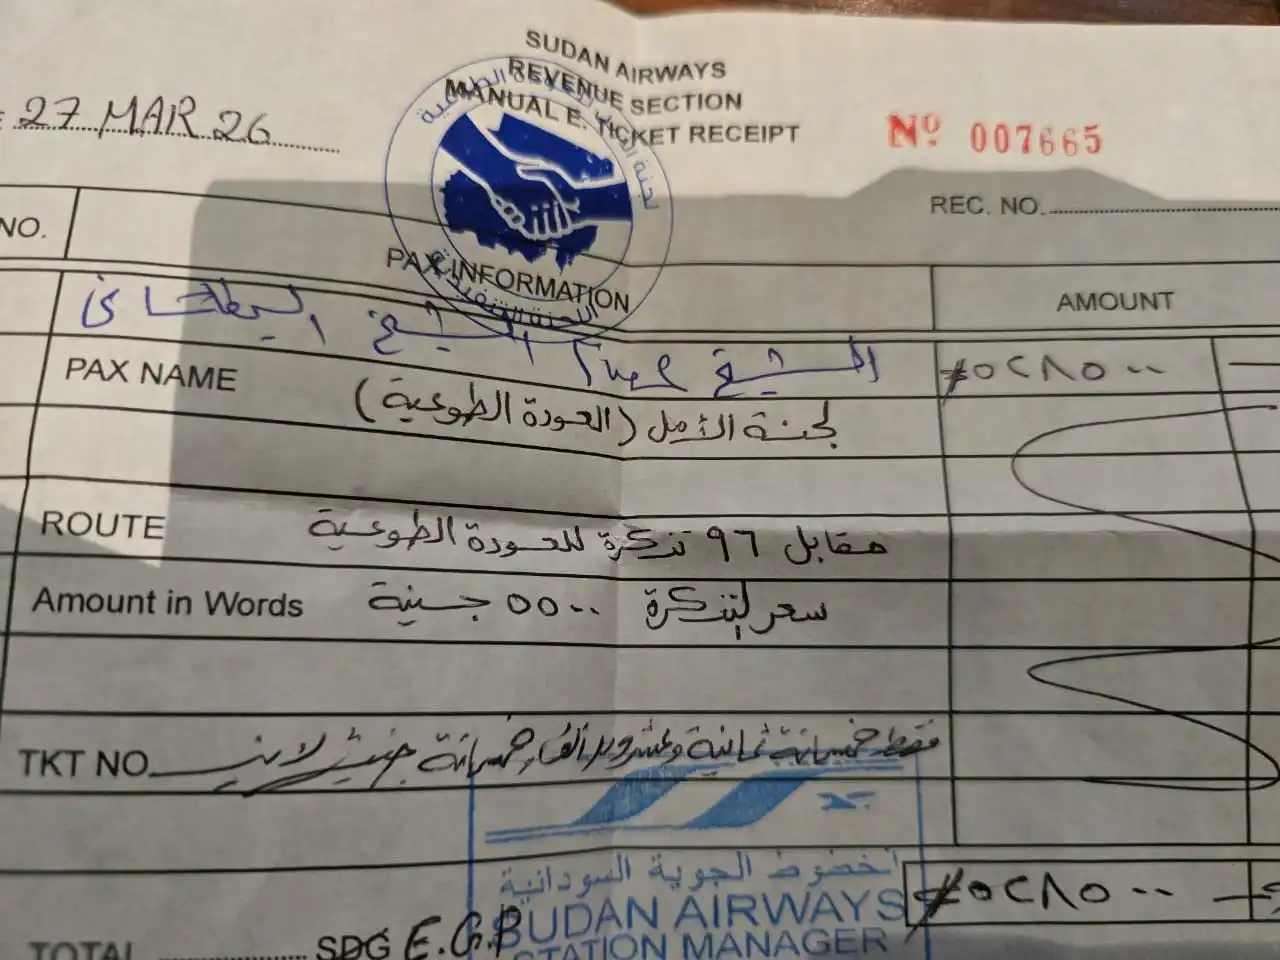 SUDAN AIRWAYS
REVENUE SECTION
MANUAL E. TICKET RECEIPT
27 MAR 26
Nº 007665
REC. NO.
NO.
PAX INFORMATION
AMOUNT
الشيخ الشيخ البطحاني
PAX NAME
#٥٢٨٥٠٠
لجنة الأمل (العودة الطوعية)
ROUTE
مقابل ٩٦ تذكرة للعودة الطوعية
Amount in Words
سعر التذكرة ٥٥٠٠ جنية
TKT NO.
فقط خمسمائة ثمانية وعشرون ألف وخمسمائة جنيه لاغير
الخطوط الجوية السودانية
SUDAN AIRWAYS
STATION MANAGER
#٥٢٨٥٠٠
TOTAL
SDG E.G.P